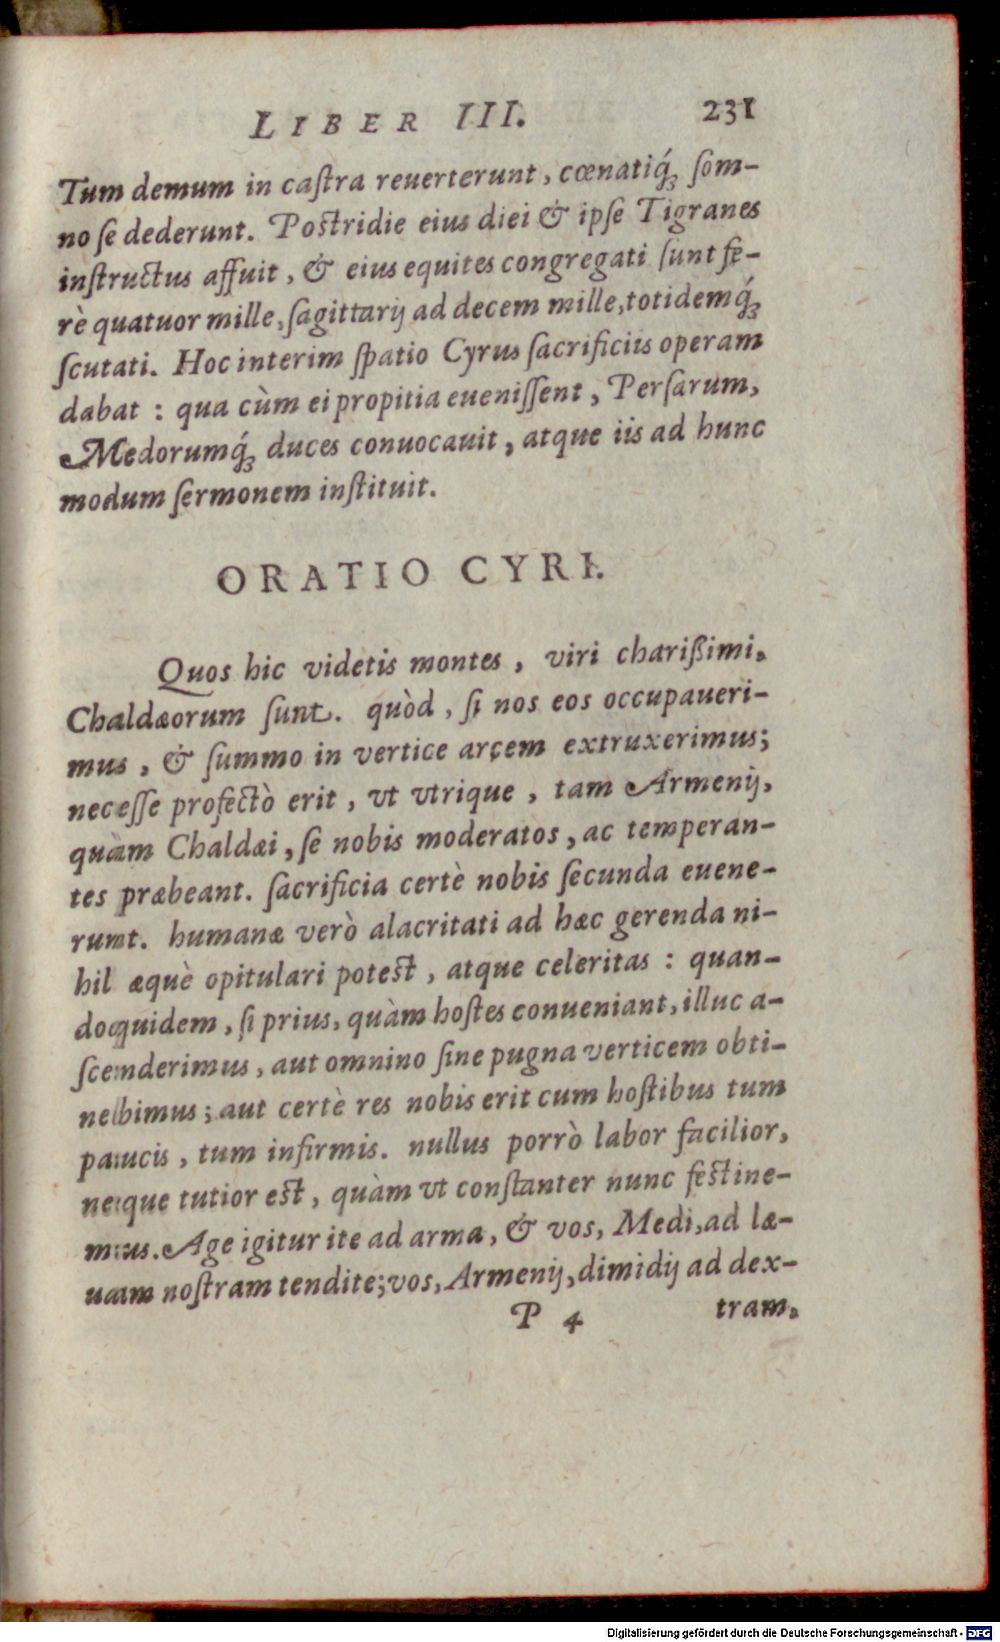 LIBER III. 231
Tum demum in caſtra reuerterunt, cœnatiq́ꝫ ſom-
no ſe dederunt. Poſtridie eius diei & ipſe Tigranes
inſtructus affuit, & eius equites congregati ſunt fe-
rè quatuor mille, ſagittarij ad decem mille, totidemq́ꝫ
ſcutati. Hoc interim ſpatio Cyrus ſacrificiis operam
dabat : qua cùm ei propitia eueniſſent, Perſarum,
Medorumq́ꝫ duces conuocauit, atque iis ad hunc
modum ſermonem inſtituit.
ORATIO CYRI.
Quos hic videtis montes, viri charißimi,
Chaldæorum ſunt. quòd, ſi nos eos occupaueri-
mus, & ſummo in vertice arcem extruxerimus;
neceſſe profectò erit, vt vtrique, tam Armenij,
quàm Chaldæi, ſe nobis moderatos, ac temperan-
tes præbeant. ſacrificia certè nobis ſecunda euene-
runt. humanæ verò alacritati ad hæc gerenda ni-
hil æquè opitulari poteſt, atque celeritas : quan-
doquidem, ſi prius, quàm hoſtes conueniant, illuc a-
ſcenderimus, aut omnino ſine pugna verticem obti-
nebimus; aut certè res nobis erit cum hoſtibus tum
paucis, tum infirmis. nullus porrò labor facilior,
neque tutior eſt, quàm vt conſtanter nunc feſtine-
mus. Age igitur ite ad arma, & vos, Medi, ad læ-
uam noſtram tendite; vos, Armenij, dimidij ad dex-
P 4 tram,
Digitalisierung gefördert durch die Deutsche Forschungsgemeinschaft - DFG